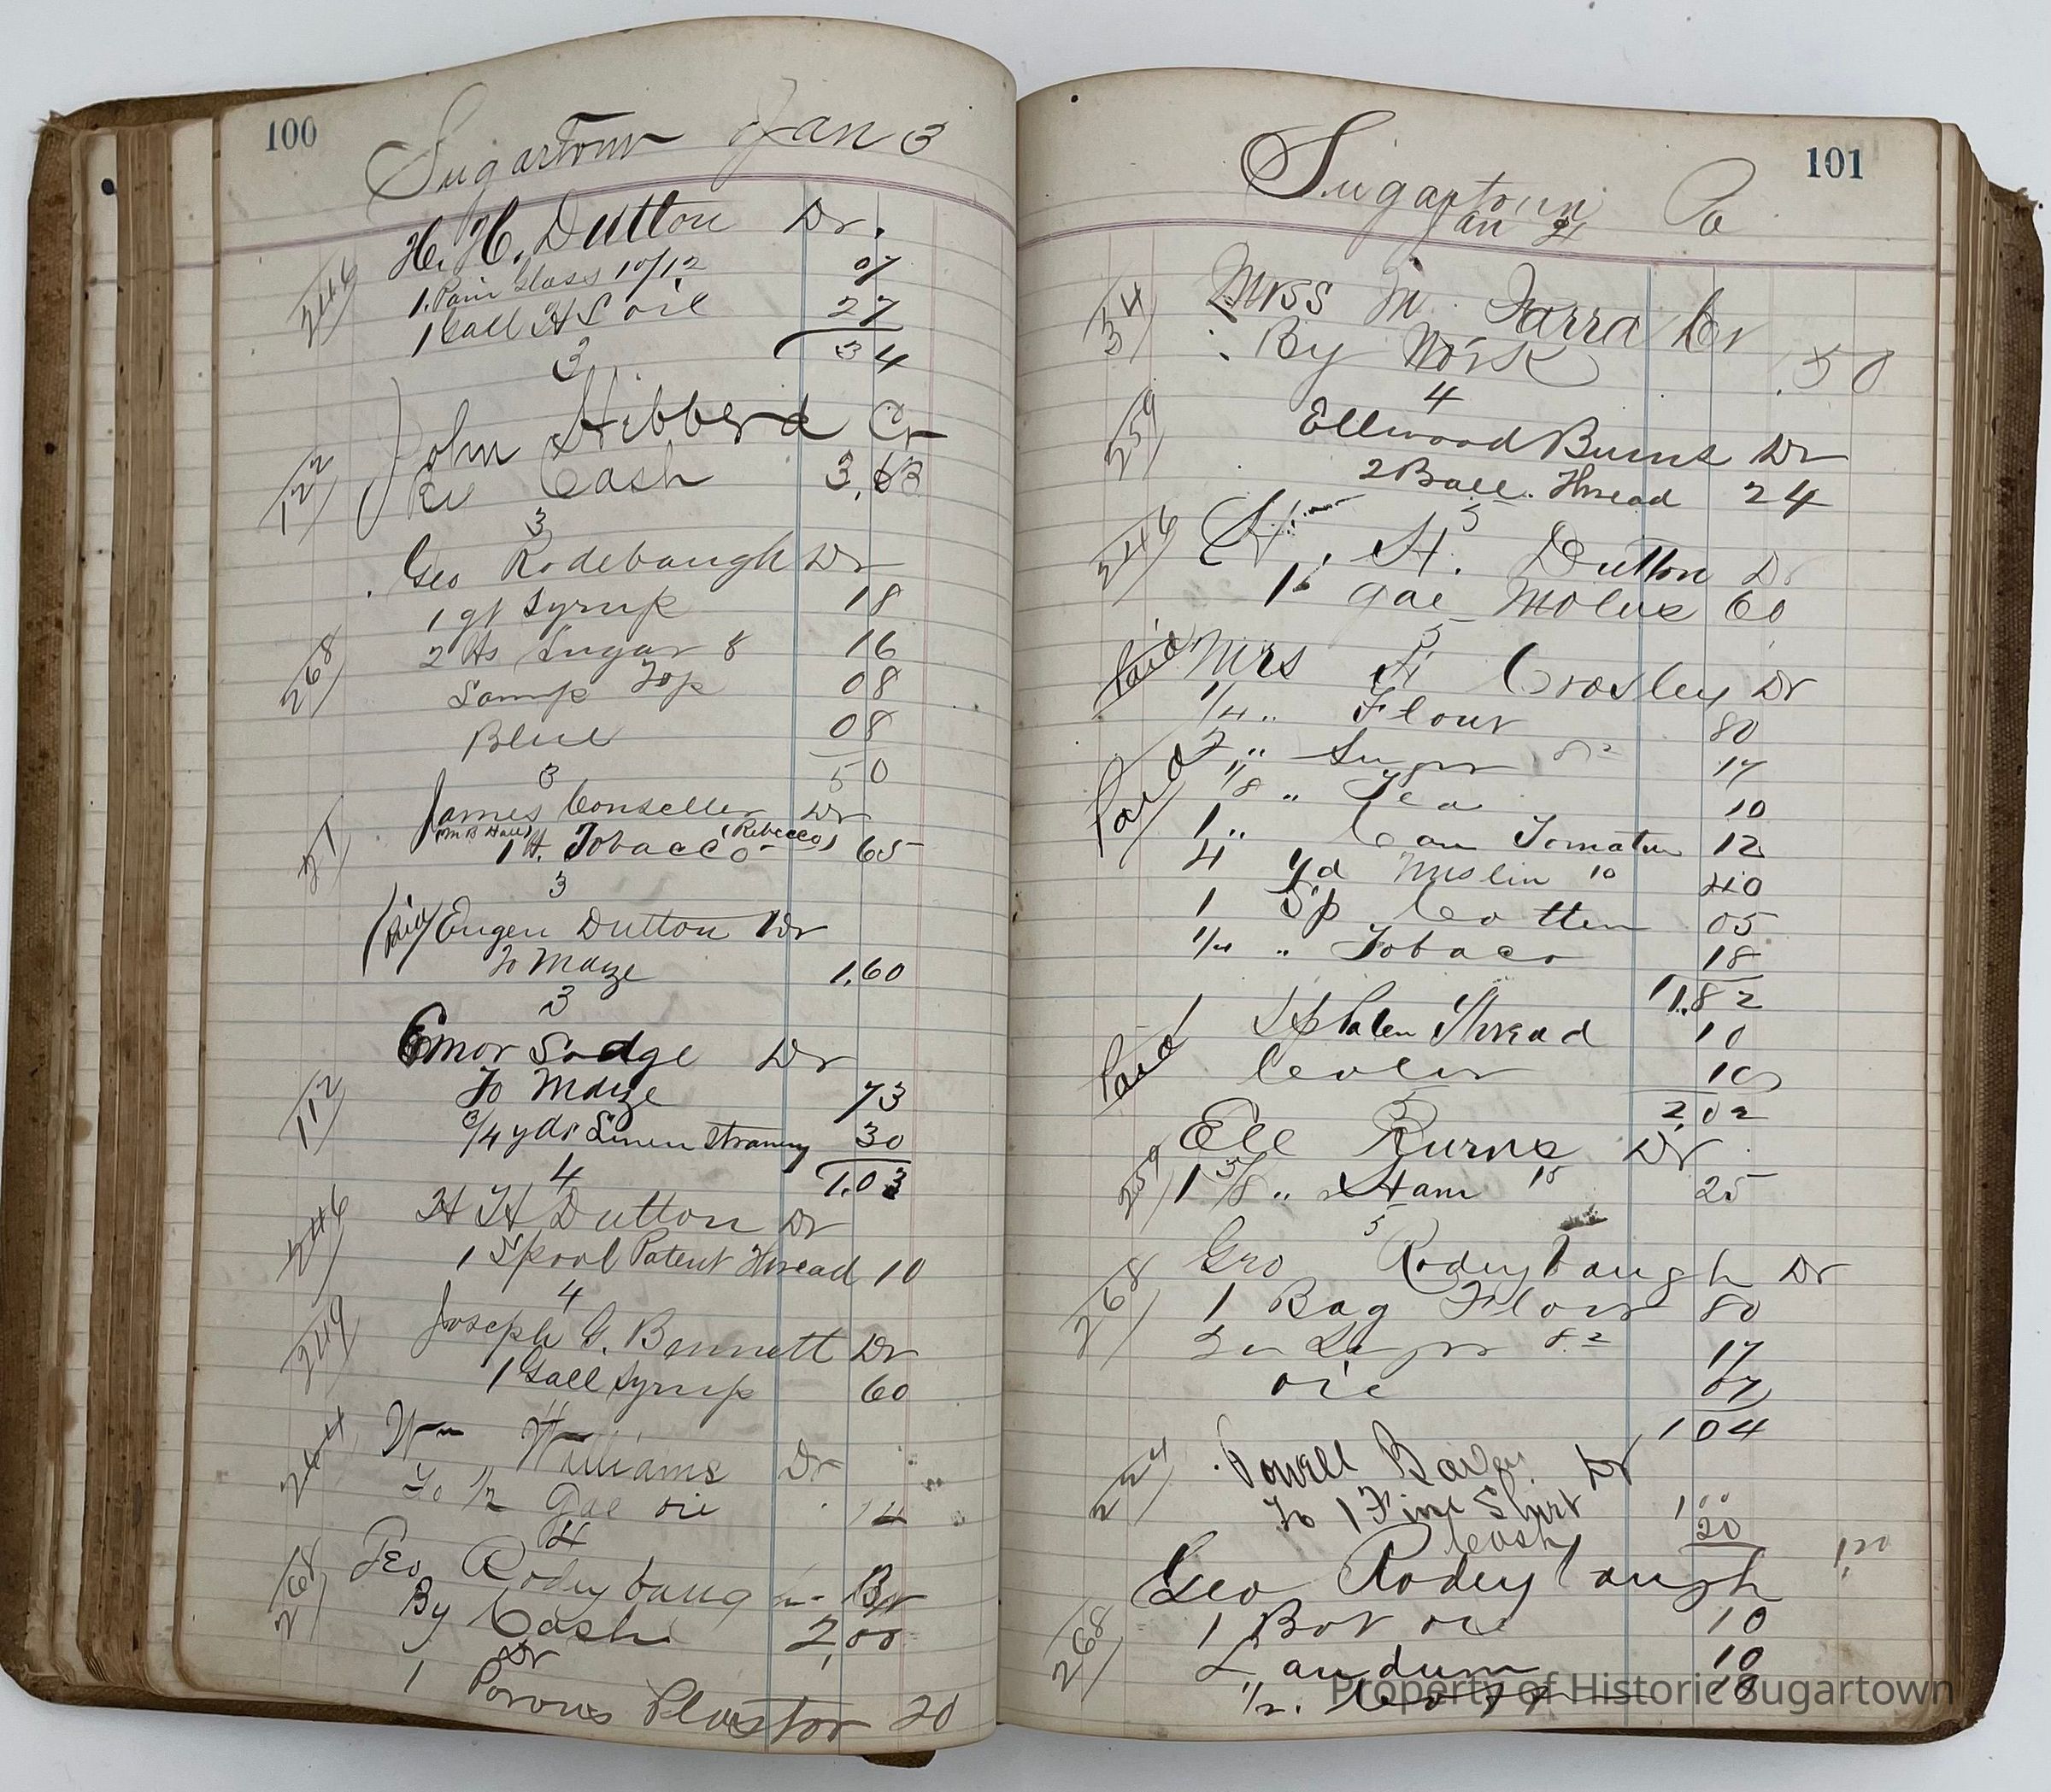 100
Sugartown Jan 3
H. H. Dutton Dr.
246
1. Pain Glass 10/12 07
1 Gall H S oil 27
3 34
John Hibberd Cr
122
Cash 3,63
3
Geo Rodebaugh Dr
1 qt Syrup 18
268
2 lbs Sugar 8 16
Lamp Top 08
Blue 08
3 50
James Conseller Dr
(Rebecca)
27
1 lb. Tobacco 65
3
Eugen Dutton Dr
To Maize 1.60
3
Emor Sodge Dr
112
To Maize 73
3/4 yds Linen 30
4 1.03
246
H H Dutton Dr
1 Spool Patent Thread 10
4
249
Joseph G. Bennett Dr
1 Gall Syrup 60
4
244
Wm Williams Dr
To 1/2 Gal oil 14
4
268
Geo Rodeybaugh
By Cash 2,00
Dr
1 Porous Plastor 20
101
Sugartown Pa
Jan 4
34
Mrss M. Farra Cr
By Work .50
4
259
Ellwood Burns Dr
2 Ball. Thread 24
5
246
H. H. Dutton Dr
1 gal Molus 60
5
Paid
Mrs H Crosley Dr
1/4 " Flour 80
2 " Sugar 8 2 17
Paid
1/8 " Tea 10
1 " Can Tomatoe 12
4 yd Muslin 10 40
1 Sp Cotten 05
1/4 " Tobaco 18
1.82
Paid
1 Thread 10
10
5 2,02
259
Ell Burns Dr
1 5/8 " Ham 15 25
5
268
Geo Rodeybaugh Dr
1 Bag Flour 80
2 " Sugar 8 2 17
oil 07
104
224
Powell Dr
To 1 Fine Shirt 1 00
Cash 20
1 20
Geo Rodeybaugh
268
1 Bot oil 10
Laudum 10
1/2. 18
Property of Historic Sugartown